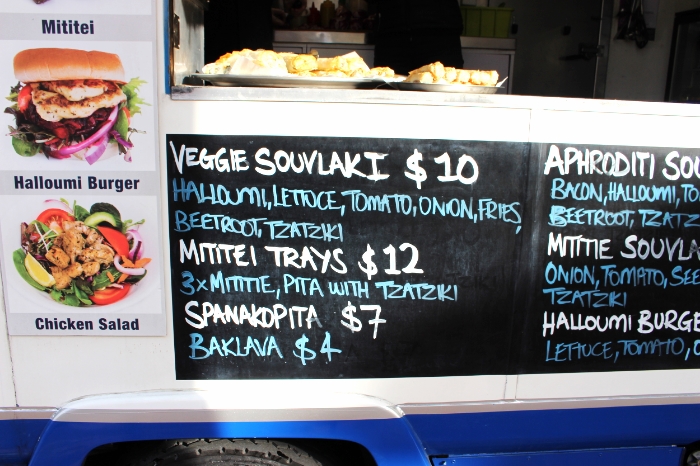 Mititei
Halloumi Burger
Chicken Salad
VEGGIE SOUVLAKI $10
HALLOUMI, LETTUCE, TOMATO, ONION, FRIES,
BEETROOT, TZATZIKI
MITITEI TRAYS $12
3x MITITIE, PITA WITH TZATZIKI
SPANAKOPITA $7
BAKLAVA $4
APHRODITI
BACON, HALLOUMI,
BEETROOT,
MITITIE
ONION, TOMATO,
TZATZIKI
HALLOUMI
LETTUCE, TOMATO,